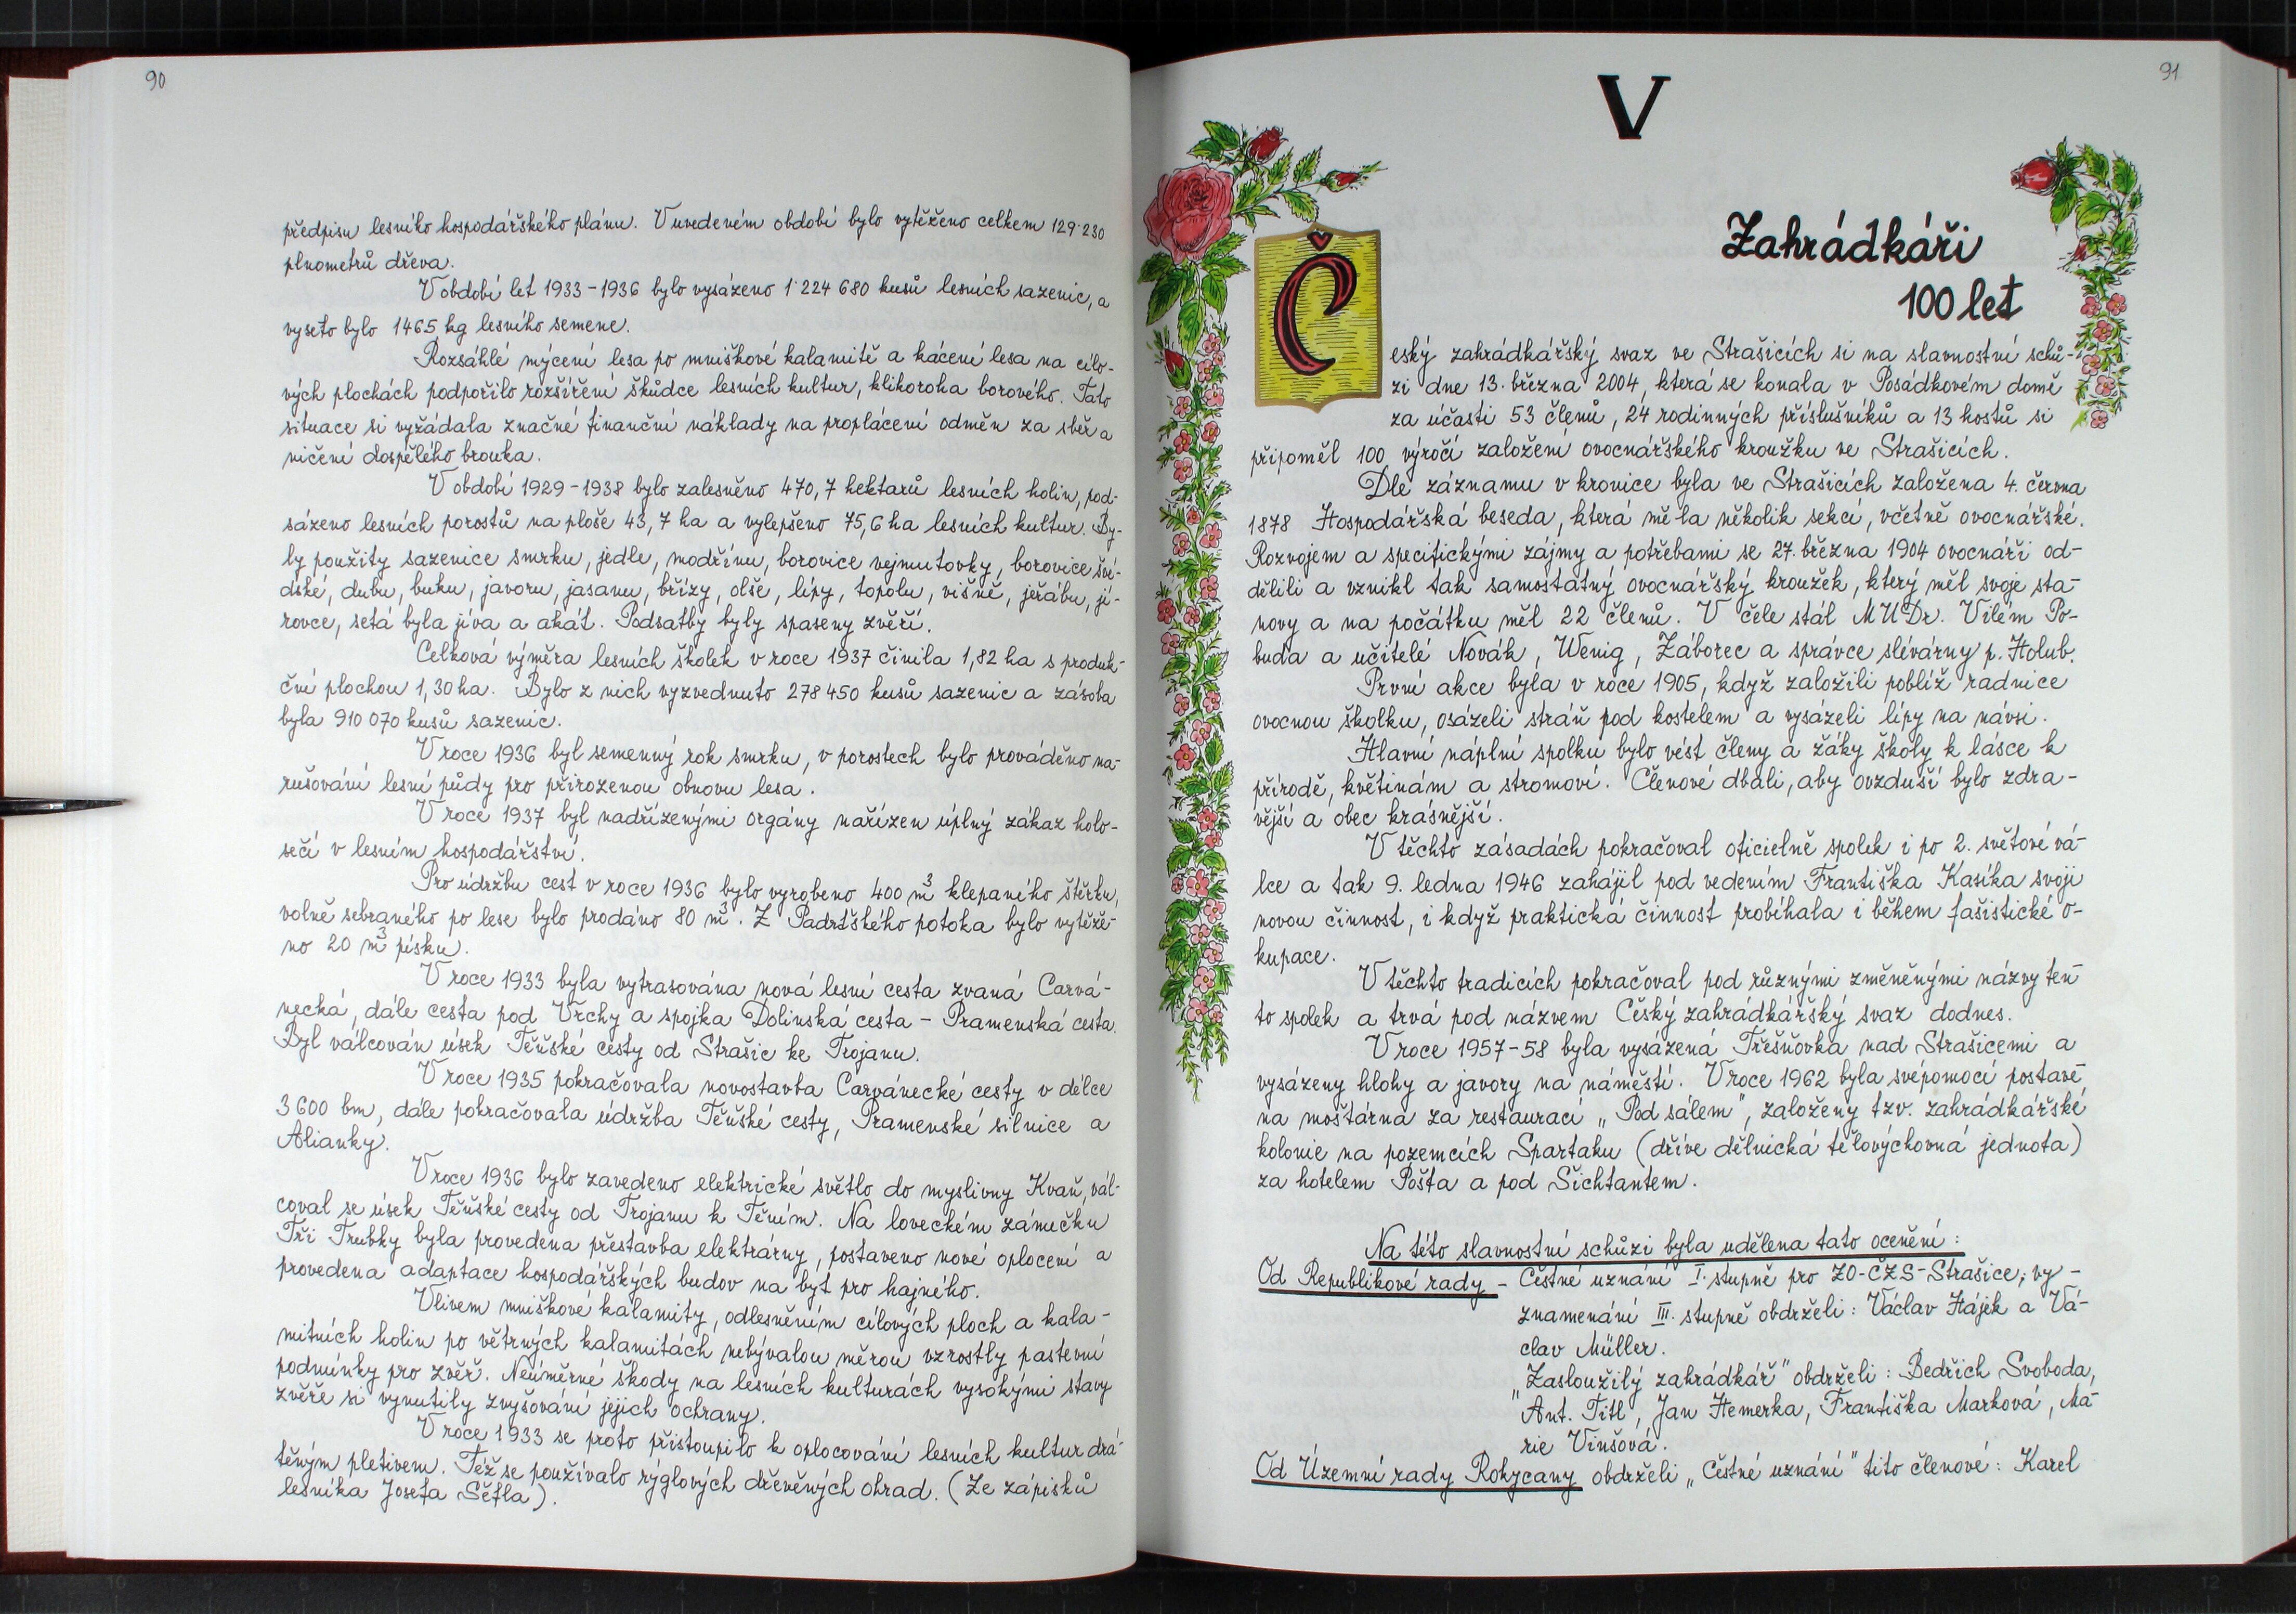 90
předpisu lesního hospodářského plánu. V uvedeném období bylo vytěženo celkem 129 230
plnometrů dřeva.
V období let 1933-1936 bylo vysázeno 1 224 680 kusů lesních sazenic, a
vyseto bylo 1465 kg lesního semene.
Rozsáhlé mýcení lesa po mniškové kalamitě a kácení lesa na cílo-
vých plochách podpořilo rozšíření škůdce lesních kultur, klikoroha borového. Tato
situace si vyžádala značné finanční náklady na proplácení odměn za sběr a
ničení dospělého brouka.
V období 1929-1938 bylo zalesněno 470,7 hektarů lesních holin, pod-
sázeno lesních porostů na ploše 43,7 ha a vylepšeno 75,6 ha lesních kultur. By-
ly použity sazenice smrku, jedle, modřínu, borovice vejmutovky, borovice švé-
dské, dubu, buku, javoru, jasanu, břízy, olše, lípy, topolu, višně, jeřábu, jí-
rovce, setá byla jíva a akát. Podsatby byly spaseny zvěří.
Celková výměra lesních školek v roce 1937 činila 1,82 ha s produk-
ční plochou 1,30 ha. Bylo z nich vyzvednuto 278 450 kusů sazenic a zásoba
byla 910 070 kusů sazenic.
V roce 1936 byl semenný rok smrku, v porostech bylo prováděno na-
rušování lesní půdy pro přirozenou obnovu lesa.
V roce 1937 byl nadřízenými orgány nařízen úplný zákaz holo-
sečí v lesním hospodářství.
Pro údržbu cest v roce 1936 bylo vyrobeno 400 m³ klepaného štěrku,
volně sebraného po lese bylo prodáno 80 m³. Z Padrťského potoka bylo vytěže-
no 20 m³ písku.
V roce 1933 byla vytrasována nová lesní cesta zvaná Carvá-
necká, dále cesta pod Vrchy a spojka Dolinská cesta - Pramenská cesta.
Byl válcován úsek Těňské cesty od Strašic ke Trojanu.
V roce 1935 pokračovala novostavba Carvánecké cesty v délce
3 600 bm, dále pokračovala údržba Těňské cesty, Pramenské silnice a
Alianky.
V roce 1936 bylo zavedeno elektrické světlo do myslivny Kvaň, vál-
coval se úsek Těňské cesty od Trojanu k Těním. Na loveckém zámečku
Tři Trubky byla provedena přestavba elektrárny, postaveno nové oplocení a
provedena adaptace hospodářských budov na byt pro hajného.
Vlivem mniškové kalamity, odlesněním cílových ploch a kala-
mitních holin po větrných kalamitách nebývalou měrou vzrostly pastevní
podmínky pro zvěř. Neúměrné škody na lesních kulturách vysokými stavy
zvěře si vynutily zvyšování jejich ochrany.
V roce 1933 se proto přistoupilo k oplocování lesních kultur drá-
těným pletivem. Též se používalo rýglových dřevěných ohrad. (Ze zápisků
lesníka Josefa Šéfla).
91
V
Zahrádkáři
100 let
Český zahrádkářský svaz ve Strašicích si na slavnostní schů-
zi dne 13. března 2004, která se konala v Posádkovém domě
za účasti 53 členů, 24 rodinných příslušníků a 13 hostů si
připoměl 100 výročí založení ovocnářského kroužku ve Strašicích.
Dle záznamu v kronice byla ve Strašicích založena 4. června
1878 Hospodářská beseda, která měla několik sekcí, včetně ovocnářské.
Rozvojem a specifickými zájmy a potřebami se 27. března 1904 ovocnáři od-
dělili a vznikl tak samostatný ovocnářský kroužek, který měl svoje sta-
novy a na počátku měl 22 členů. V čele stál MUDr. Vilém Po-
buda a učitelé Novák, Wenig, Záborec a správce slévárny p. Holub.
První akce byla v roce 1905, když založili poblíž radnice
ovocnou školku, osázeli stráň pod kostelem a vysázeli lípy na návsi.
Hlavní náplní spolku bylo vést členy a žáky školy k lásce k
přírodě, květinám a stromoví. Členové dbali, aby ovzduší bylo zdra-
vější a obec krásnější.
V těchto zásadách pokračoval oficielně spolek i po 2. světové vá-
lce a tak 9. ledna 1946 zahájil pod vedením Františka Kasíka svoji
novou činnost, i když praktická činnost probíhala i během fašistické o-
kupace.
V těchto tradicích pokračoval pod různými změněnými názvy ten-
to spolek a trvá pod názvem Český zahrádkářský svaz dodnes.
V roce 1957-58 byla vysázená Třešňovka nad Strašicemi a
vysázeny hlohy a javory na náměstí. V roce 1962 byla svépomocí postave-
na moštárna za restaurací „Pod sálem", založeny tzv. zahrádkářské
kolonie na pozemcích Spartaku (dříve dělnická tělovýchovná jednota)
za hotelem Pošta a pod Šichtantem.
Na této slavnostní schůzi byla udělena tato ocenění:
Od Republikové rady - Čestné uznání I. stupně pro ZO-ČZS-Strašice, vy-
znamenání III. stupně obdrželi: Václav Hájek a Vá-
clav Müller.
„Zasloužilý zahrádkář" obdrželi: Bedřich Svoboda,
Ant. Titl, Jan Hemerka, Františka Marková, Ma-
rie Vinšová.
Od Územní rady Rokycany obdrželi „Čestné uznání" tito členové: Karel